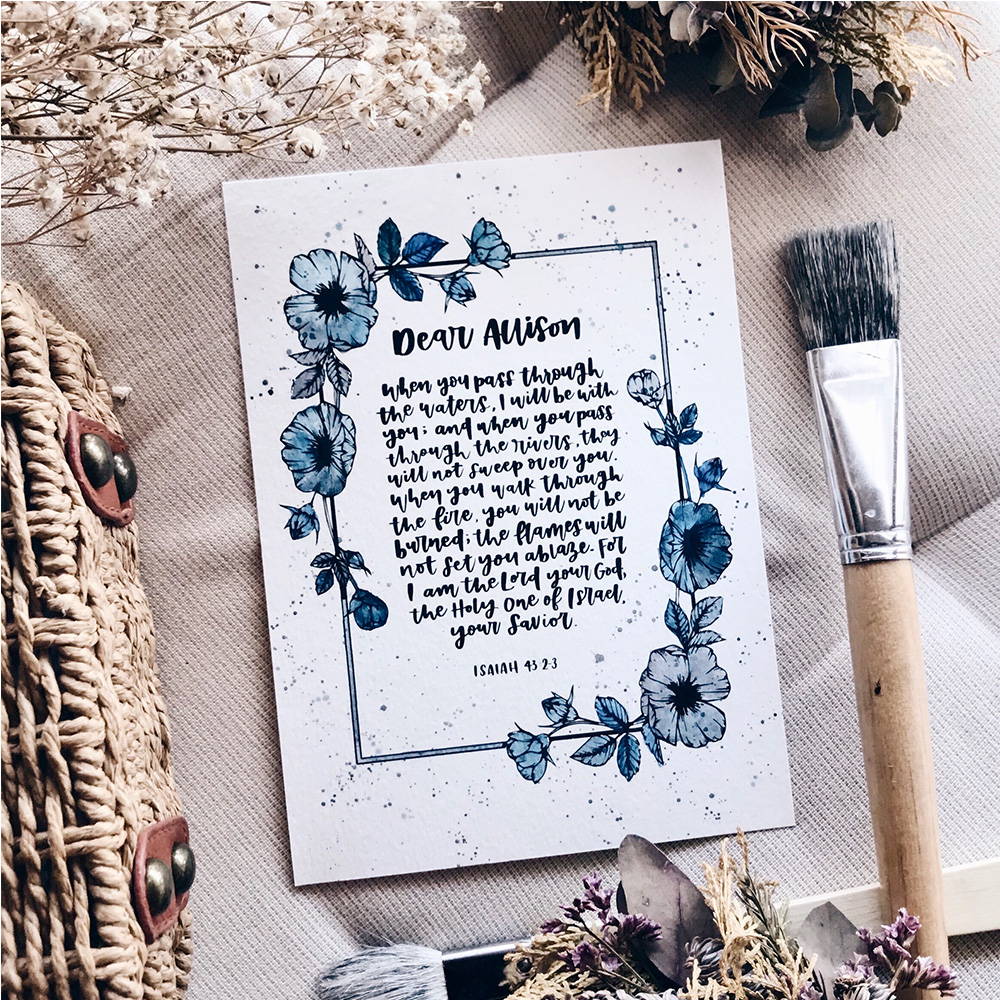 Dear Allison
When you pass through
the waters, I will be with
you; and when you pass
through the rivers, they
will not sweep over you.
When you walk through
the fire, you will not be
burned; the flames will
not set you ablaze. For
I am the Lord your God,
the Holy One of Israel,
your Savior.
ISAIAH 43 2-3